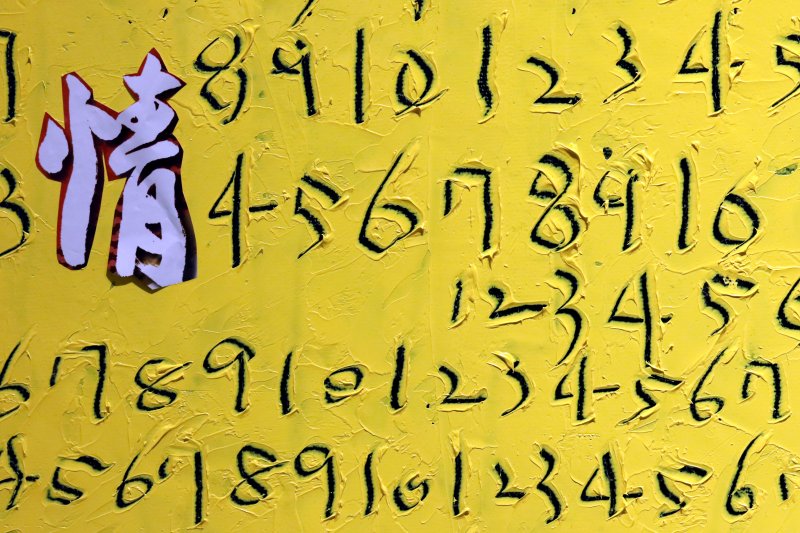 7 情 8 9 10 1 2 3 4 5
3 4 5 6 7 8 9 10
1 2 3 4 5 6
6 7 8 9 10 1 2 3 4 5 6 7
4 5 6 7 8 9 10 1 2 3 4 5 6